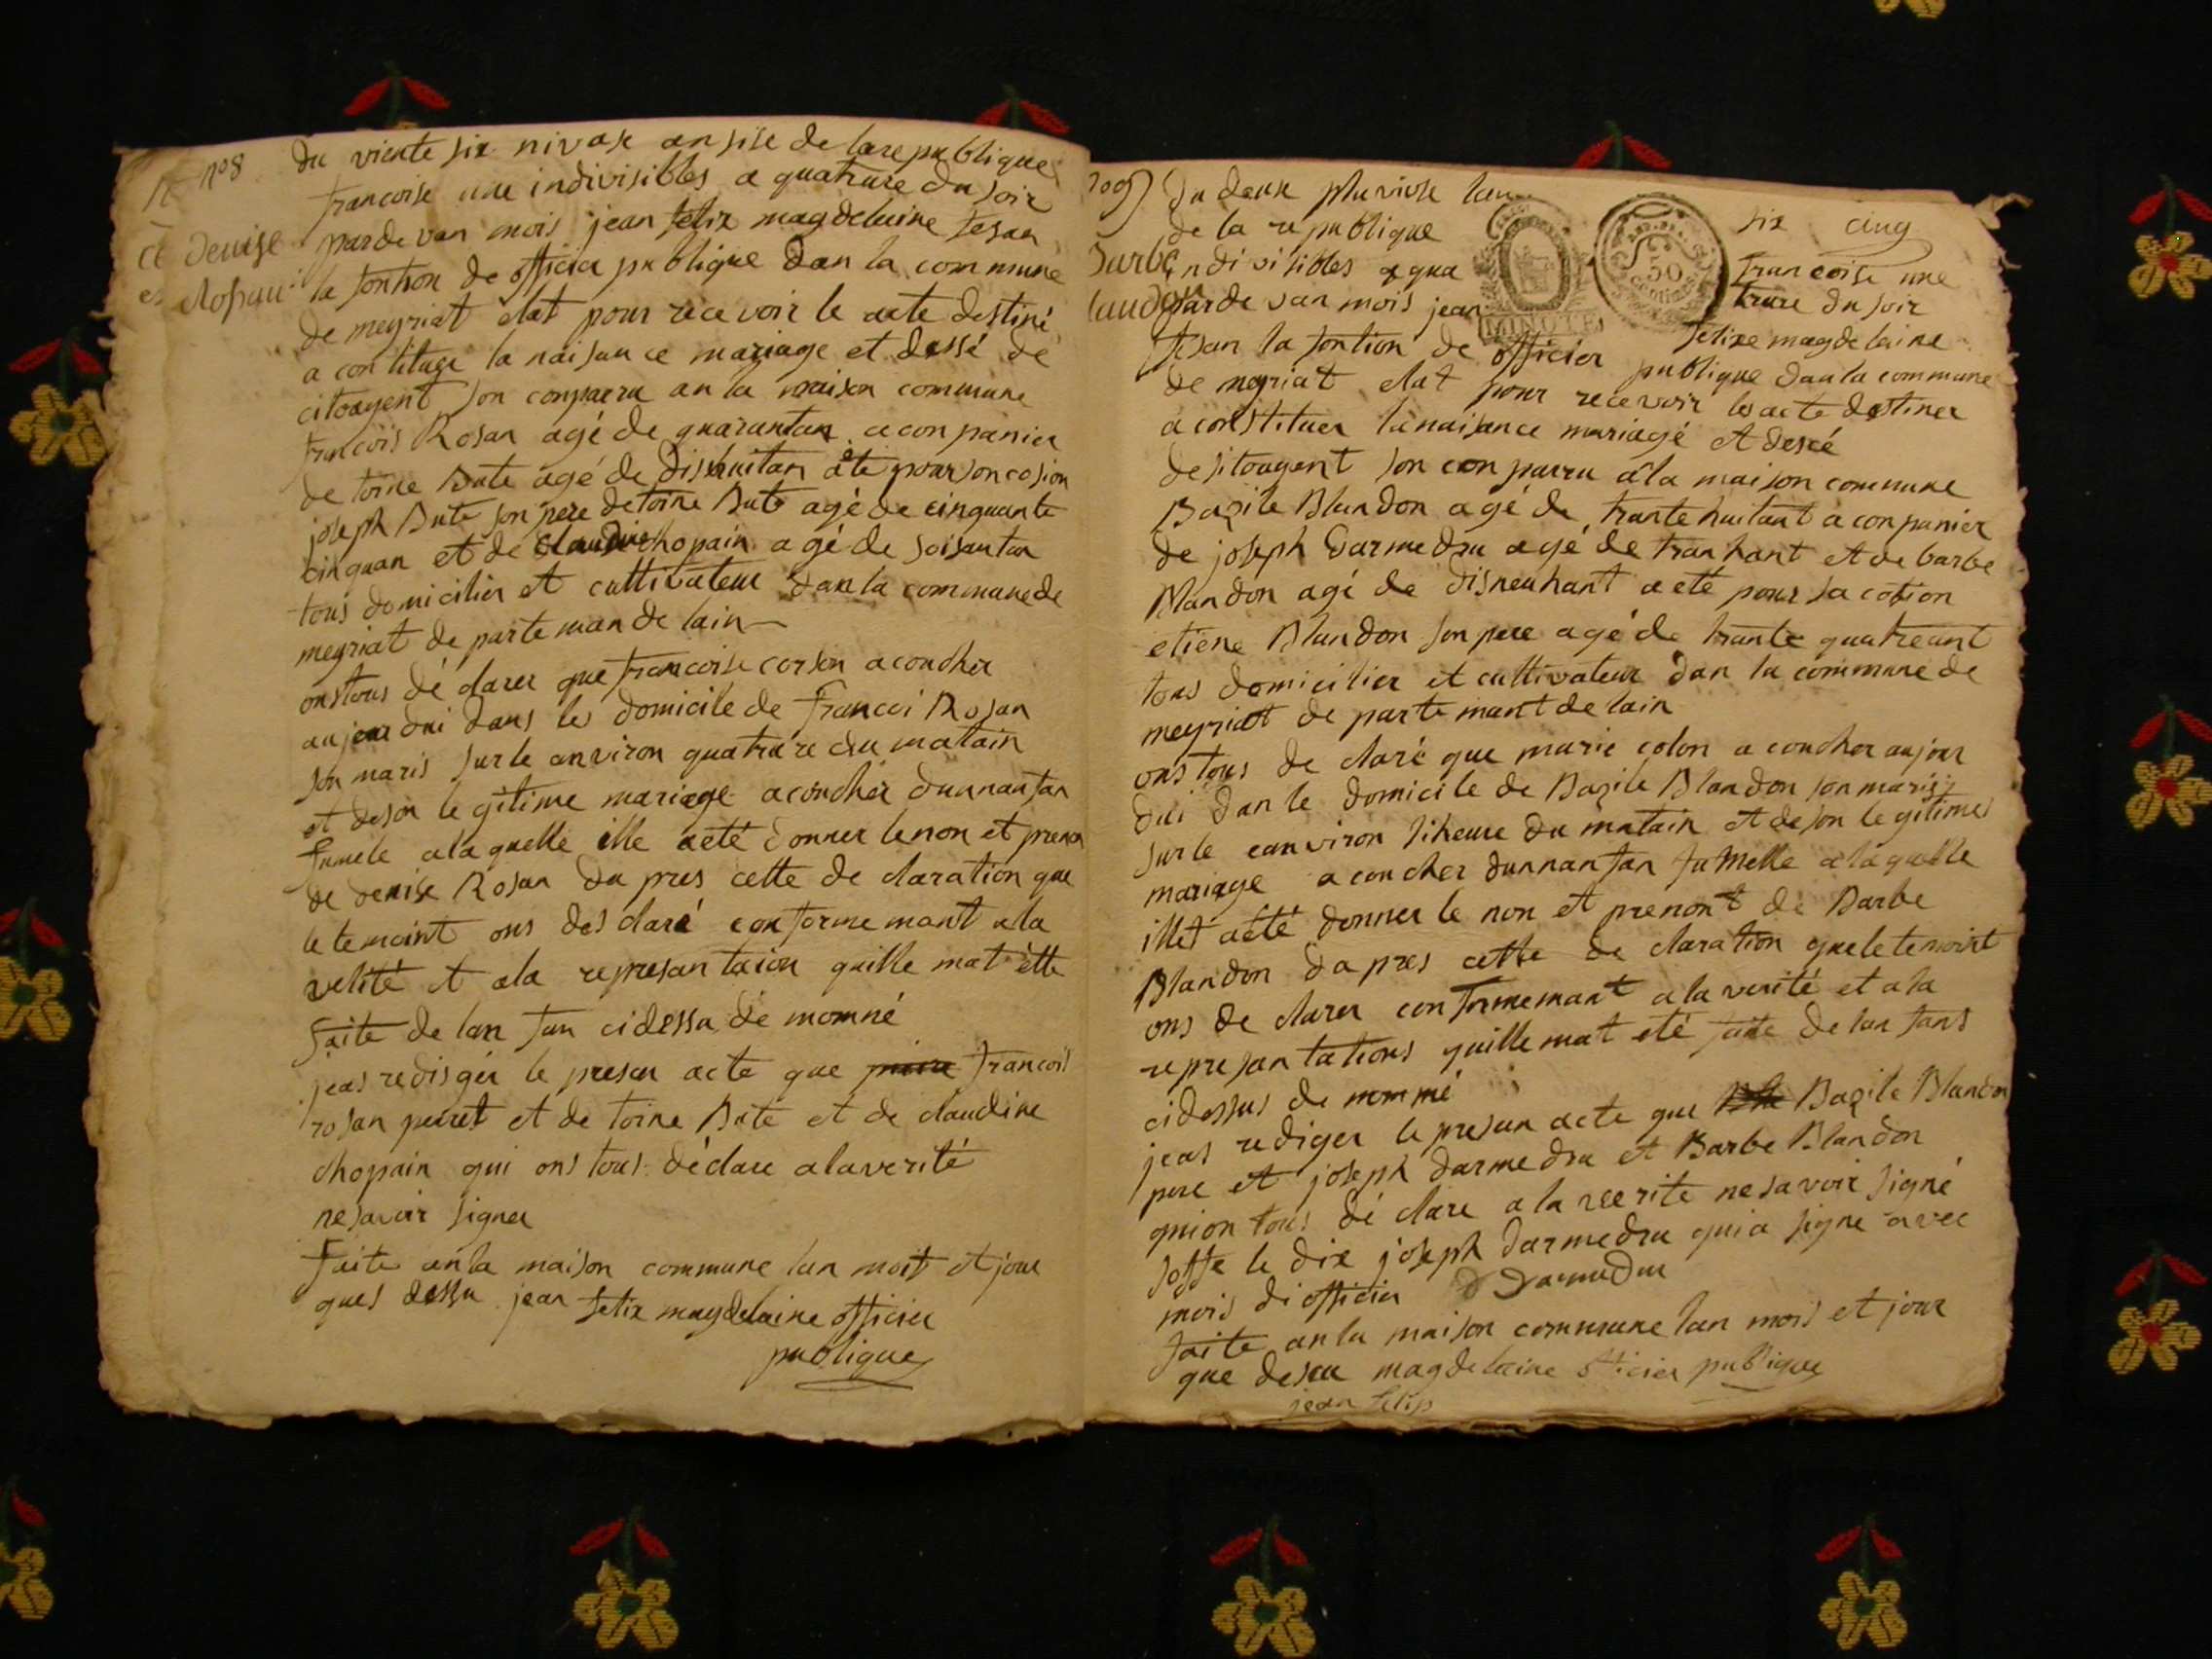 no8
du viente six nivose an sise de la republique
francoise une indivisibles a quatrure du soir
denise par de van mois jean felix magdelaine fesan
la fontion de officier publique dan la commune
de meyriat elat pour recevoir le acte destiné
a contituer la naisance mariage et dessé de
citoayent son conparru an la maison commune
francois Rosan agé de quarantan a conpanier
de toine Bute agé de dishuitan ete pour son cosion
joseph Bute son pere de toine Bute agé de cinquante
cinquan et de claudine chopain agé de soisantan
tous domicilier et cultivateur dan la commune de
meyriat de parteman de lain
ons tous dé clarer que francoise corson a coucher
aujourdui dans le domicile de francoi Rosan
son maris sur le anviron quatrure du matain
et deson le gitime mariage a coucher dunnanfan
fumele a la quelle ille aeté donner le non et prenon
de denise Rosan da pres cette de claration que
le temoint ons des claré conforme mant a la
velité et a la represantaion quille mat ette
faite de lan fan cidessu dé nommé
jeas redisger le presan acte que francois
rosan peiret et de toine Bute et de claudine
chopain qui ons tous déclare a la verité
ne savoir signer
faite an la maison commune lan moit et jour
ques dessu jean felix magdelaine officier
publique
du deuse pluviose lan six cinq
de la republique francoise une
indivisibles a quatrure du soir
par de van mois jean felixe magdelaine
fesan la fontion de officier publique dan la commune
de meyriat elat pour recevoir les acte destiner
a constituer la naisance mariagé et descé
de sitoagent son con parru a la maison commune
Bazile Blandon agé de trante huitant a conpanier
de joseph darmedru agé de tran hant et de barbe
Blandon agé de disneuhant a eté pour sa cotion
etiene Blandon son pere agé de trante quatreant
tous domicilier et cultivateur dan la commune de
meyriat de parte mant de lain
ons tous de claré que marie colon a coucher aujour
dui dan le domicile de Bazile Blandon son maris
sur le eanviron siheure du matain et deson le gitimes
mariage a coucher dunnanfan fumelle a la quelle
illet aété donner le non et prenont de Barbe
Blandon da pres cette de claration que le temoint
ons de clarer conformemant a la verité et a la
represantations quille mat eté faite de lan fans
cidessus de nommé
jeas rediger le presan acte que Bazile Blandon
pere et joseph darmedru et Barbe Blandon
qui on tous dé clare a la veerite ne savoir signé
soffe le dix joseph darmedru qui a signe avec
mois di officier D Darmedru
faite an la maison commune lan mois et jour
que dessu magdelaine oficier publique
jean felix
MINUTE
50
centimes